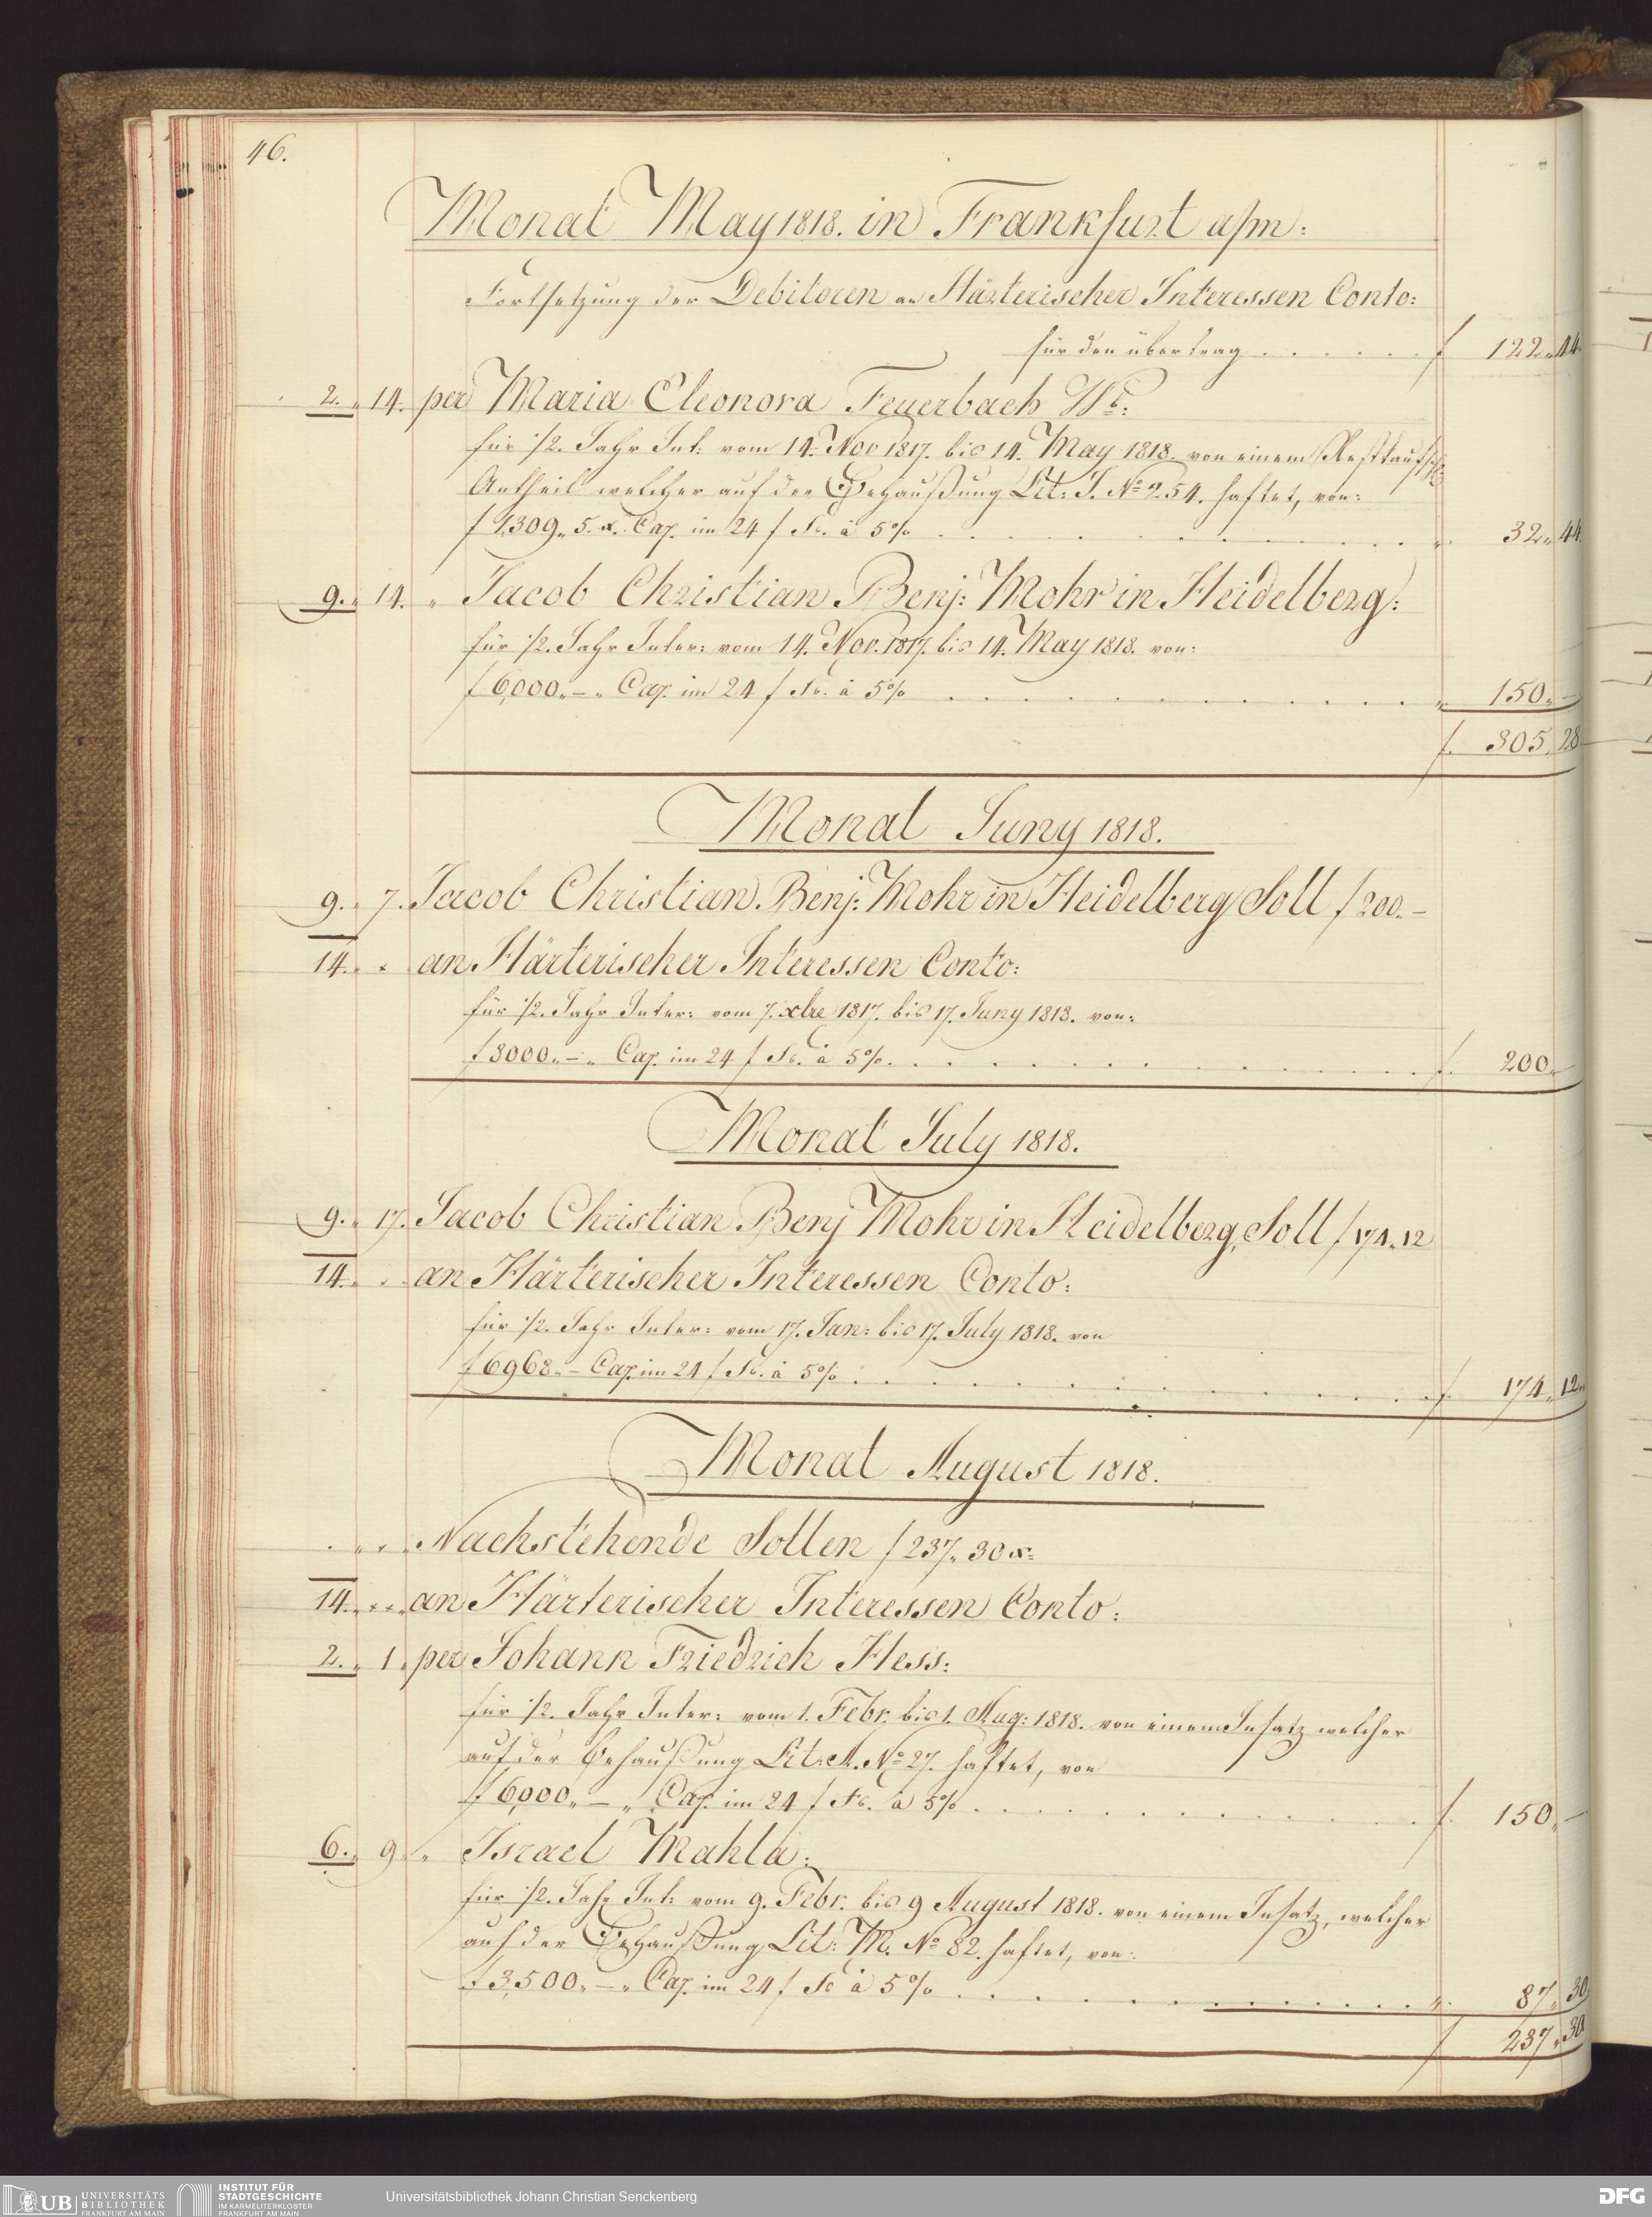 46.
Monat May 1818. in Frankfurt a/m:
Fortsetzung der Debitoren an Härterischer Interessen Conto:
für den übertrag . . . . . . f 122.,44.
2. „ 14. per Maria Eleonora Feuerbach Wb:
für 1/2. Jahr Int: vom 14. Nov 1817. bis 14. May 1818. von einem Restkaufsch
Antheil welcher auf der Behaußung Lit: J. No 254. haftet, von:
f 1,309„ 5. x. Cap. im 24 f Fs. à 5% . . . . . . „ 32„ 44.
9. „ 14. „ Jacob Christian Benj: Mohr in Heidelberg:
für 1/2. Jahr Inter: vom 14. Nov. 1817. bis 14. May 1818. von:
f 6,000„ – „ Cap. im 24 f Fs. à 5% . . . . . . „ 150„ –
f. 305„ 28
Monat Juny 1818.
9. „ 7. Jacob Christian Benj: Mohr in Heidelberg Soll f 200. –
14. „ „ an Härterischer Interessen Conto:
für 1/2. Jahr Inter: vom 7. xbre 1817. bis 17. Juny 1818. von:
f 8000„ – „ Cap. im 24 f Fs. à 5% . . . . . . f. 200„ –
Monat July 1818.
9. „ 17. Jacob Christian Benj Mohr in Heidelberg, Soll f 174„ 12
14. „ „ an Härterischer Interessen Conto:
für 1/2. Jahr Inter: vom 17. Jan: bis 17. July 1818. von
f 6968„ – Cap. im 24 f Fs. à 5% . . . . . . f. 174„ 12„
Monat August 1818.
„ „ Nachstehende Sollen f 237„ 30 x:
14. „ „ an Härterischer Interessen Conto:
2. „ 1 „ per Johann Friedrich Hess:
für 1/2. Jahr Inter: vom 1. Febr. bis 1. Aug: 1818. von einem Insatz welcher
auf der Behaußung Lit: A. No 27. haftet, von
f 6,000„ – „ Cap. im 24 f Fs. à 5% . . . . . . f. 150„ –
6. „ 9 „ Israel Mahla:
für 1/2. Jahr Int: vom 9. Febr. bis 9 August 1818. von einem Insatz, welcher
auf der Behaußung Lit: M. No 82. haftet, von:
f 3,500„ – „ Cap. im 24 f Fs à 5% . . . . . . „ 87„ 30
f 237„ 30
UB UNIVERSITÄTS BIBLIOTHEK FRANKFURT AM MAIN
INSTITUT FÜR STADTGESCHICHTE IM KARMELITERKLOSTER FRANKFURT AM MAIN
Universitätsbibliothek Johann Christian Senckenberg
DFG